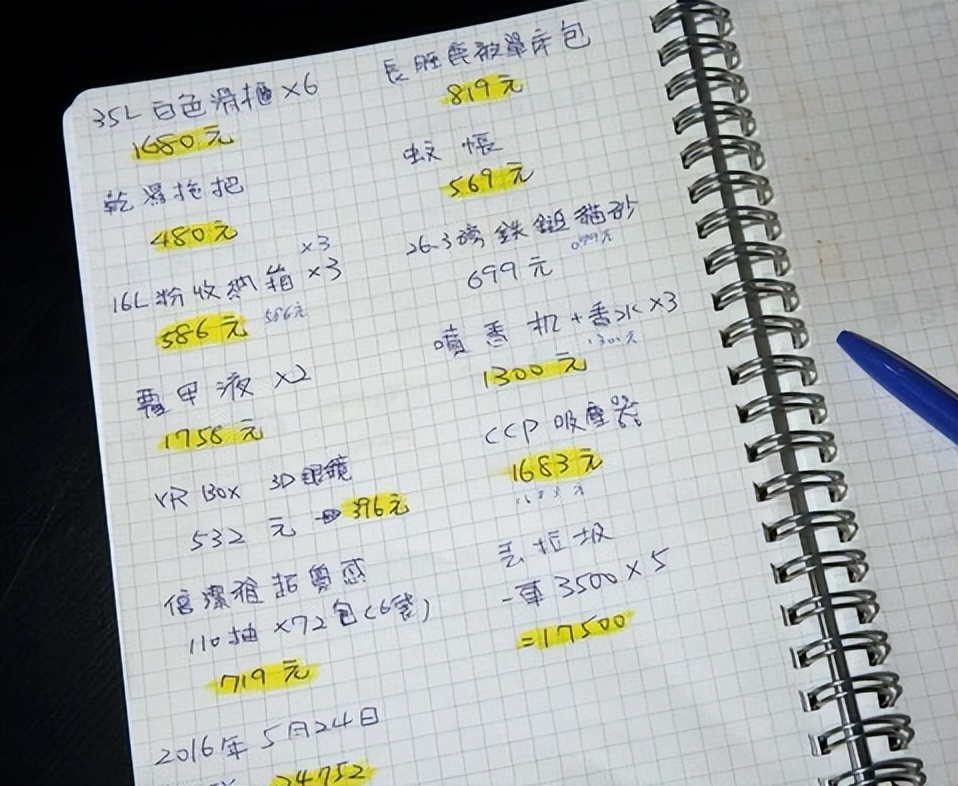 35L 白色滑櫃 ×6
1680元
乾濕拖把
480元
×3
16L 粉收納箱 ×3
586元 586元
覆甲液 ×2
1758元
VR BOX 3D眼鏡
532元 → 396元
倍潔雅超質感
110抽 ×72包(6袋)
719元
2016年5月24日
24752
長睡鹿被單床包
819元
蚊帳
569元
26.3磅鉄鎚貓砂
699元
699元
噴香机+香水×3
1300元
1300元
CCP 吸塵器
1683元
1683元
丟垃圾
一車3500×5
=17500